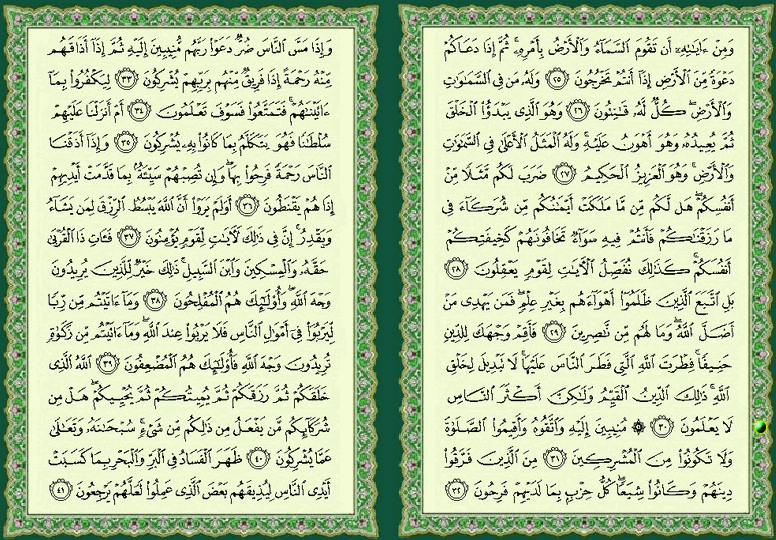 وَمِنْ ءَايَٰتِهِۦٓ أَن تَقُومَ ٱلسَّمَآءُ وَٱلْأَرْضُ بِأَمْرِهِۦ ۚ ثُمَّ إِذَا دَعَاكُمْ
دَعْوَةً مِّنَ ٱلْأَرْضِ إِذَآ أَنتُمْ تَخْرُجُونَ ﴿٢٥﴾ وَلَهُۥ مَن فِى ٱلسَّمَٰوَٰتِ
وَٱلْأَرْضِ ۖ كُلٌّ لَّهُۥ قَٰنِتُونَ ﴿٢٦﴾ وَهُوَ ٱلَّذِى يَبْدَؤُا۟ ٱلْخَلْقَ
ثُمَّ يُعِيدُهُۥ وَهُوَ أَهْوَنُ عَلَيْهِ ۚ وَلَهُ ٱلْمَثَلُ ٱلْأَعْلَىٰ فِى ٱلسَّمَٰوَٰتِ
وَٱلْأَرْضِ ۚ وَهُوَ ٱلْعَزِيزُ ٱلْحَكِيمُ ﴿٢٧﴾ ضَرَبَ لَكُم مَّثَلًا مِّنْ
أَنفُسِكُمْ ۖ هَل لَّكُم مِّن مَّا مَلَكَتْ أَيْمَٰنُكُم مِّن شُرَكَآءَ فِى
مَا رَزَقْنَٰكُمْ فَأَنتُمْ فِيهِ سَوَآءٌ تَخَافُونَهُمْ كَخِيفَتِكُمْ
أَنفُسَكُمْ ۚ كَذَٰلِكَ نُفَصِّلُ ٱلْءَايَٰتِ لِقَوْمٍ يَعْقِلُونَ ﴿٢٨﴾
بَلِ ٱتَّبَعَ ٱلَّذِينَ ظَلَمُوٓا۟ أَهْوَآءَهُم بِغَيْرِ عِلْمٍ ۖ فَمَن يَهْدِى مَنْ
أَضَلَّ ٱللَّهُ ۖ وَمَا لَهُم مِّن نَّٰصِرِينَ ﴿٢٩﴾ فَأَقِمْ وَجْهَكَ لِلدِّينِ
حَنِيفًا ۚ فِطْرَتَ ٱللَّهِ ٱلَّتِى فَطَرَ ٱلنَّاسَ عَلَيْهَا ۚ لَا تَبْدِيلَ لِخَلْقِ
ٱللَّهِ ۚ ذَٰلِكَ ٱلدِّينُ ٱلْقَيِّمُ وَلَٰكِنَّ أَكْثَرَ ٱلنَّاسِ
لَا يَعْلَمُونَ ﴿٣٠﴾ ۞ مُنِيبِينَ إِلَيْهِ وَٱتَّقُوهُ وَأَقِيمُوا۟ ٱلصَّلَوٰةَ
وَلَا تَكُونُوا۟ مِنَ ٱلْمُشْرِكِينَ ﴿٣١﴾ مِنَ ٱلَّذِينَ فَرَّقُوا۟
دِينَهُمْ وَكَانُوا۟ شِيَعًا ۖ كُلُّ حِزْبٍۭ بِمَا لَدَيْهِمْ فَرِحُونَ ﴿٣٢﴾
وَإِذَا مَسَّ ٱلنَّاسَ ضُرٌّ دَعَوْا۟ رَبَّهُم مُّنِيبِينَ إِلَيْهِ ثُمَّ إِذَآ أَذَاقَهُم
مِّنْهُ رَحْمَةً إِذَا فَرِيقٌ مِّنْهُم بِرَبِّهِمْ يُشْرِكُونَ ﴿٣٣﴾ لِيَكْفُرُوا۟ بِمَآ
ءَاتَيْنَٰهُمْ ۚ فَتَمَتَّعُوا۟ فَسَوْفَ تَعْلَمُونَ ﴿٣٤﴾ أَمْ أَنزَلْنَا عَلَيْهِمْ
سُلْطَٰنًا فَهُوَ يَتَكَلَّمُ بِمَا كَانُوا۟ بِهِۦ يُشْرِكُونَ ﴿٣٥﴾ وَإِذَآ أَذَقْنَا
ٱلنَّاسَ رَحْمَةً فَرِحُوا۟ بِهَا ۖ وَإِن تُصِبْهُمْ سَيِّئَةٌۢ بِمَا قَدَّمَتْ أَيْدِيهِمْ
إِذَا هُمْ يَقْنَطُونَ ﴿٣٦﴾ أَوَلَمْ يَرَوْا۟ أَنَّ ٱللَّهَ يَبْسُطُ ٱلرِّزْقَ لِمَن يَشَآءُ
وَيَقْدِرُ ۚ إِنَّ فِى ذَٰلِكَ لَءَايَٰتٍ لِّقَوْمٍ يُؤْمِنُونَ ﴿٣٧﴾ فَـَٔاتِ ذَا ٱلْقُرْبَىٰ
حَقَّهُۥ وَٱلْمِسْكِينَ وَٱبْنَ ٱلسَّبِيلِ ۚ ذَٰلِكَ خَيْرٌ لِّلَّذِينَ يُرِيدُونَ
وَجْهَ ٱللَّهِ ۖ وَأُو۟لَٰٓئِكَ هُمُ ٱلْمُفْلِحُونَ ﴿٣٨﴾ وَمَآ ءَاتَيْتُم مِّن رِّبًا
لِّيَرْبُوَا۟ فِىٓ أَمْوَٰلِ ٱلنَّاسِ فَلَا يَرْبُوا۟ عِندَ ٱللَّهِ ۖ وَمَآ ءَاتَيْتُم مِّن زَكَوٰةٍ
تُرِيدُونَ وَجْهَ ٱللَّهِ فَأُو۟لَٰٓئِكَ هُمُ ٱلْمُضْعِفُونَ ﴿٣٩﴾ ٱللَّهُ ٱلَّذِى
خَلَقَكُمْ ثُمَّ رَزَقَكُمْ ثُمَّ يُمِيتُكُمْ ثُمَّ يُحْيِيكُمْ ۖ هَلْ مِن
شُرَكَآئِكُم مَّن يَفْعَلُ مِن ذَٰلِكُم مِّن شَىْءٍ ۚ سُبْحَٰنَهُۥ وَتَعَٰلَىٰ
عَمَّا يُشْرِكُونَ ﴿٤٠﴾ ظَهَرَ ٱلْفَسَادُ فِى ٱلْبَرِّ وَٱلْبَحْرِ بِمَا كَسَبَتْ
أَيْدِى ٱلنَّاسِ لِيُذِيقَهُم بَعْضَ ٱلَّذِى عَمِلُوا۟ لَعَلَّهُمْ يَرْجِعُونَ ﴿٤١﴾